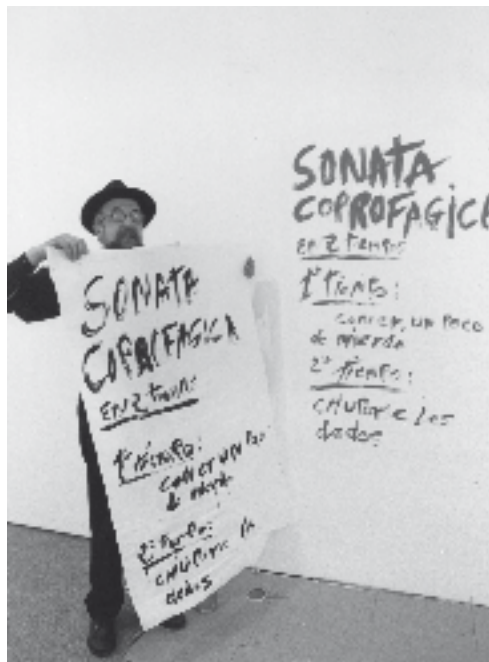 SONATA
COPROFAGICA
EN 2 tiempos
1º tiempo:
comer un poco
de mierda
2º tiempo:
chuparse los
dedos
SONATA
COPROFAGICA
en 2 tiempos
1º tiempo:
comer un poco
de mierda
2º tiempo:
chuparse los
dedos